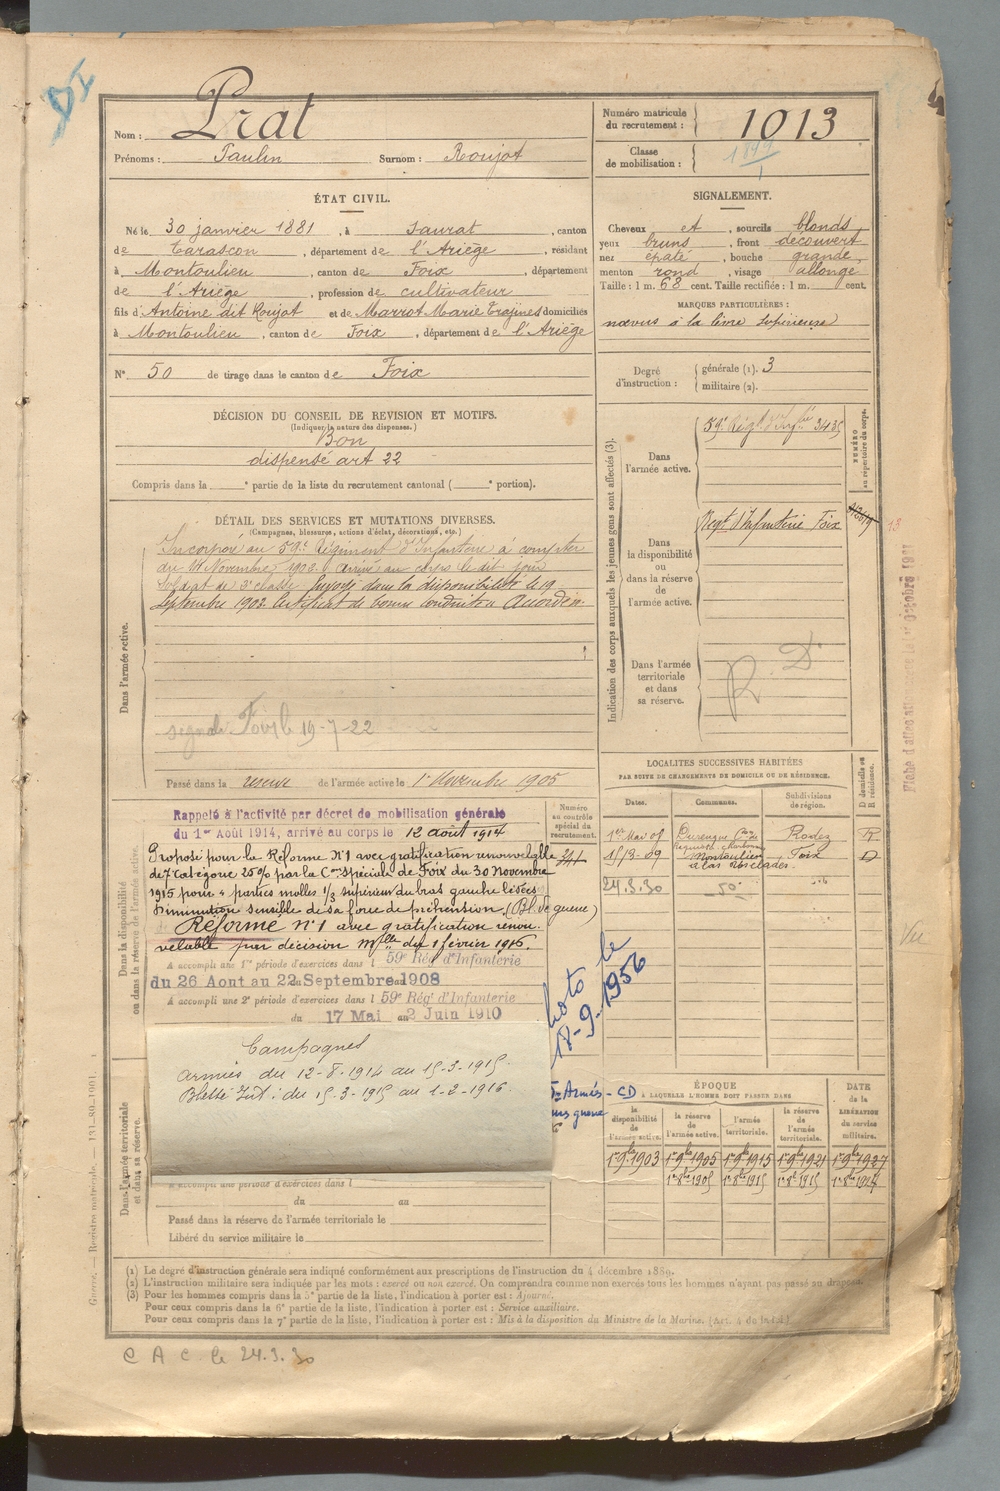 Nom : Prat
Prénoms : Paulin Surnom : Roujot
Numéro matricule du recrutement : 1013
Classe de mobilisation : 1899
ÉTAT CIVIL.
Né le 30 janvier 1881, à Saurat, canton
de Tarascon, département de l'Ariège, résidant
à Montoulieu, canton de Foix, département
de l'Ariège, profession de cultivateur
fils d'Antoine dit Roujot et de Marrot Marie domiciliés
à Montoulieu, canton de Foix, département de l'Ariège
N° 50 de tirage dans le canton de Foix
SIGNALEMENT.
Cheveux et, sourcils blonds
yeux bruns, front découvert
nez épaté, bouche grande,
menton rond, visage allongé
Taille : 1 m. 68 cent. Taille rectifiée : 1 m. cent.
MARQUES PARTICULIÈRES :
nœvus à la lèvre supérieure
Degré d'instruction : générale (1). 3
militaire (2).
DÉCISION DU CONSEIL DE REVISION ET MOTIFS.
(Indiquer la nature des dispenses.)
Bon
dispensé art 22
Compris dans la e partie de la liste du recrutement cantonal ( e portion).
DÉTAIL DES SERVICES ET MUTATIONS DIVERSES.
(Campagnes, blessures, actions d'éclat, décorations, etc.)
Dans l'armée active.
Incorporé au 59e Régiment d'Infanterie à compter
du 14 Novembre 1902. Arrivé au corps le dit jour
soldat de 2e classe. Envoyé dans la disponibilité le 19
Septembre 1903. Certificat de bonne conduite Accordé.
Foix le 19-7-22
Passé dans la réserve de l'armée active le 1er Novembre 1905
Indication des corps auxquels les jeunes gens sont affectés (3).
NUMÉRO au répertoire du corps.
Dans l'armée active.
59e Régt d'Infie 3435
Dans la disponibilité ou dans la réserve de l'armée active.
Regt d'Infanterie Foix
13
Dans l'armée territoriale et dans sa réserve.
R D
Dans la disponibilité ou dans la réserve de l'armée active.
Rappelé à l'activité par décret de mobilisation générale
du 1er Août 1914, arrivé au corps le 12 août 1914
Numéro au contrôle spécial du recrutement.
Proposé pour la Réforme N°1 avec gratification renouvelable
de 7 catégorie 25% par la Con spéciale de Foix du 30 Novembre
1915 pour " parties molles 1/3 supérieur du bras gauche lésées
Diminution sensible de sa force de préhension. (Bl. de guerre)
Réformé n°1 avec gratification renou-
velable par décision Mlle du 1 février 1916.
A accompli une 1re période d'exercices dans l 59e Rég. d'Infanterie
du 26 Aout au 22 Septembre 1908
A accompli une 2e période d'exercices dans l 59e Rég. d'Infanterie
du 17 Mai au 2 Juin 1910
Campagnes
armées du 12-8-1914 au 15-3-1915.
Blessé Int : du 15-3-1915 au 1-2-1916.
Dans l'armée territoriale et dans sa réserve.
A accompli une période d'exercices dans l
du au
Passé dans la réserve de l'armée territoriale le
Libéré du service militaire le
LOCALITES SUCCESSIVES HABITÉES
PAR SUITE DE CHANGEMENTS DE DOMICILE OU DE RÉSIDENCE.
Dates. Communes. Subdivisions de région. D domicile ou R résidence.
Rodez R
15/3-09 Montoulieu Foix D
24.3.30
le
18-9-1956
ÉPOQUE
A LAQUELLE L'HOMME DOIT PASSER DANS
DATE de la LIBÉRATION du service militaire.
la disponibilité de l'armée active. la réserve de l'armée active. l'armée territoriale. la réserve de l'armée territoriale.
1er 9bre 1903 1er 9bre 1905 1er 9bre 1915 1er 9bre 1921 1er 9bre 1927
(1) Le degré d'instruction générale sera indiqué conformément aux prescriptions de l'instruction du 4 décembre 1889.
(2) L'instruction militaire sera indiquée par les mots : exercé ou non exercé. On comprendra comme non exercés tous les hommes n'ayant pas passé au drapeau.
(3) Pour les hommes compris dans la 5e partie de la liste, l'indication à porter est : Ajourné.
Pour ceux compris dans la 6e partie de la liste, l'indication à porter est : Service auxiliaire.
Pour ceux compris dans la 7e partie de la liste, l'indication à porter est : Mis à la disposition du Ministre de la Marine.
C A C. le 24.3.30
Vu